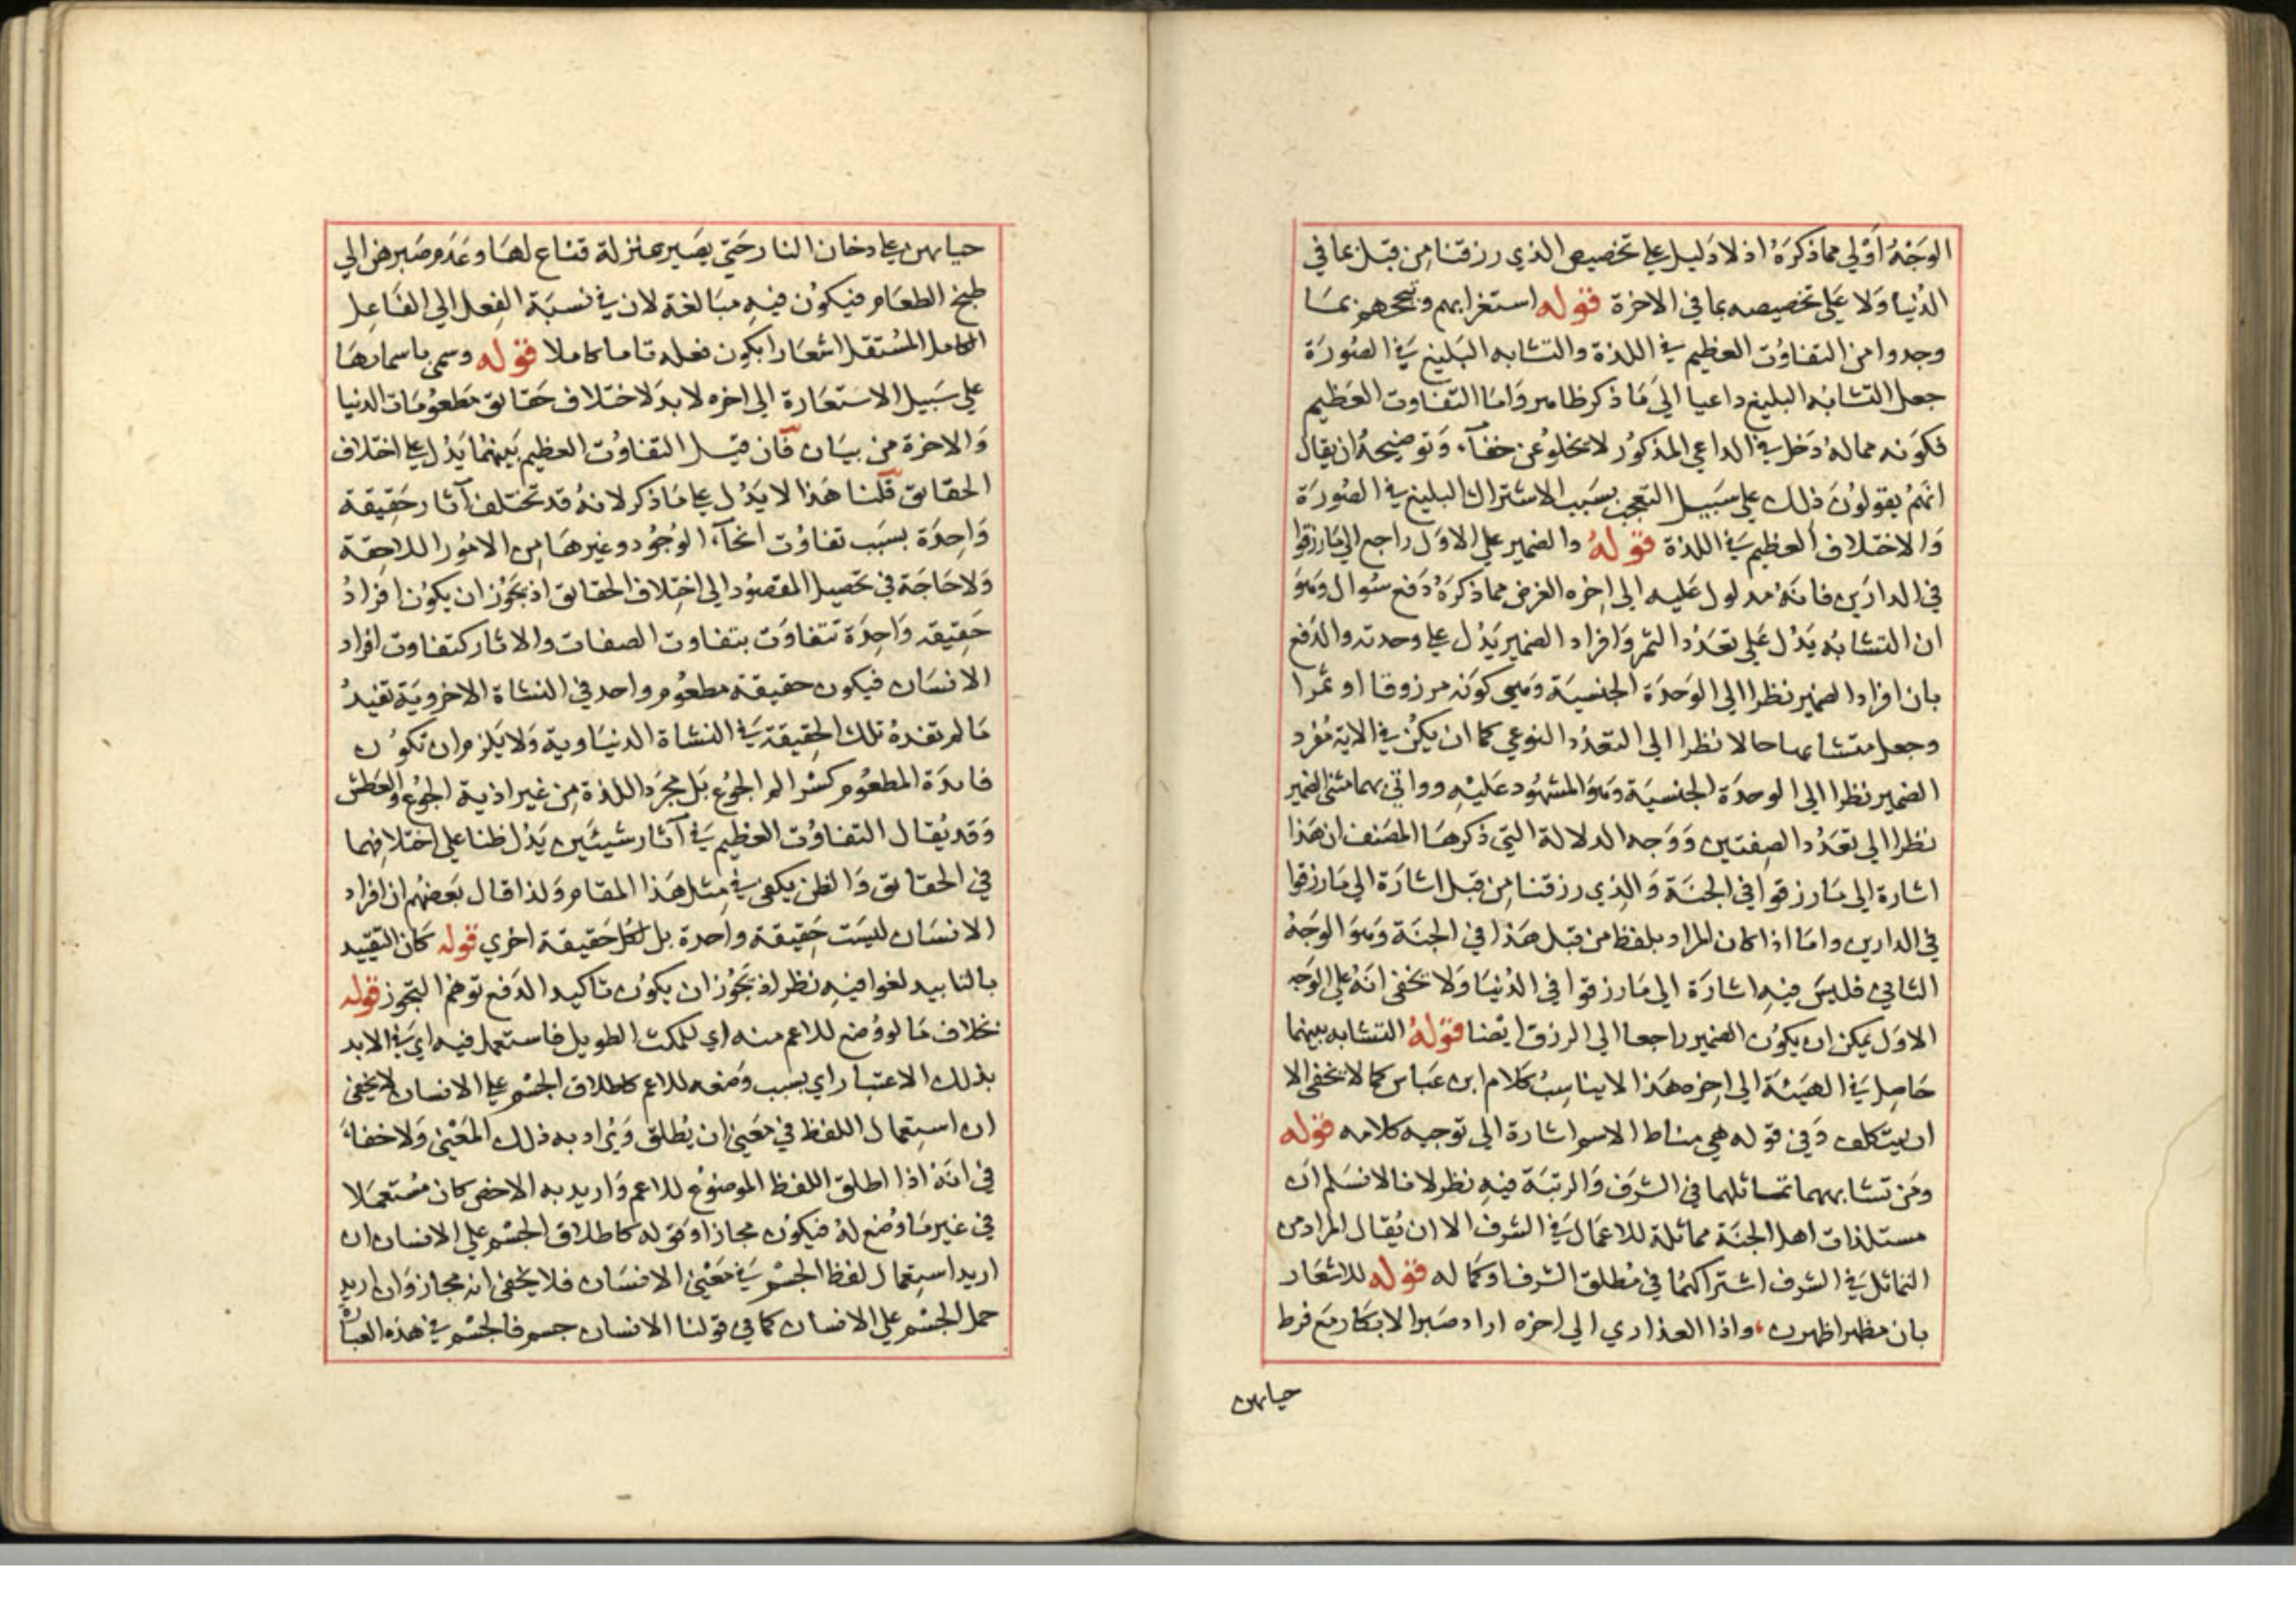 الوجه اولي مما ذكره اذ لا دليل علي تخصيص الذي رزقنا من قبل بما في
الدنيا ولا علي تخصيصه بما في الاخرة قوله استغرابهم وتبجحهم بما
وجدوا من التفاوت العظيم في اللذة والتشابه البليغ في الصورة
جعل التشابه البليغ داعيا الي ما ذكر ظاهر واما التفاوت العظيم
فكونه مما له دخل في الداعي المذكور لا يخلو عن خفآء وتوضيحه ان يقال
انهم يقولون ذلك علي سبيل التعجب بسبب الاشتراك البليغ في الصورة
والاختلاف العظيم في اللذة قوله والضمير علي الاول راجع الي ما رزقوا
في الدارين فانه مدلول عليه الي اخره الغرض مما ذكره دفع سئوال وهو
ان التشابه يدل علي تعدد الثمر وافراد الضمير يدل علي وحدته والدفع
بان افراد الضمير نظرا الي الوحدة الجنسية وهي كونه مرزوقا او ثمرا
وجعل متشابها حالا نظرا الي التعدد النوعي كما ان يكن في الاية مفرد
الضمير نظرا الي الوحدة الجنسية وهو المشهود عليه وواتي بهما مثني الضمير
نظرا الي تعدد الصفتين ووجه الدلالة التي ذكرها المصنف ان هذا
اشارة الي ما رزقوا في الجنة والذي رزقنا من قبل اشارة الي ما رزقوا
في الدارين واما اذا كان المراد بلفظ من قبل هذا في الجنة وهو الوجه
الثاني فليس فيه اشارة الي ما رزقوا في الدنيا ولا يخفي انه علي الوجه
الاول يمكن ان يكون الضمير راجعا الي الرزق ايضا قوله التشابه بينهما
حاصل في الهيئة الي اخره هذا لا يناسب كلام ابن عباس كما لا يخفي الا
ان يتكلف وفي قوله هي مناط الاسم اشارة الي توجيه كلامه قوله
ومن تشابههما تماثلهما في الشرف والرتبة فيه نظر لانا لا نسلم ان
مستلذات اهل الجنة مماثلة للاعمال في الشرف الا ان يقال المراد من
التماثل في الشرف اشتراكهما في مطلق الشرف او كماله قوله للاشعار
بان مطهرا ظهرن، واذا العذاري الي اخره اراد صبر الابكار مع فرط
حيايهن
حيايهن علي دخان النار حتي يصير بمنزلة قناع لها وعدم صبرهن الي
طبخ الطعام فيكون فيه مبالغة لان في نسبة الفعل الي الفاعل
الكامل المستقل اشعارا بكون فعله تاما كاملا قوله وسمي باسمايها
علي سبيل الاستعارة الي اخره لا بد لاختلاف حقايق مطعومات الدنيا
والاخرة من بيان فان قيل التفاوت العظيم بينهما يدل علي اختلاف
الحقايق قلنا هذا لا يدل علي ما ذكر لانه قد تختلف آثار حقيقة
واحدة بسبب تفاوت انحآء الوجود وغيرها من الامور اللاحقة
ولا حاجة في تحصيل المقصود الي اختلاف الحقايق اذ يجوز ان يكون افراد
حقيقة واحدة تتفاوت بتفاوت الصفات والاثار كتفاوت افراد
الانسان فيكون حقيقة مطعوم واحد في النشاة الاخروية تفيد
ما لم تفده تلك الحقيقة في النشاة الدنياوية ولا يلزم ان تكون
فايدة المطعوم كسر الم الجوع بل مجرد اللذة من غير اذية الجوع والعطش
وقد يقال التفاوت العظيم في آثار شيئين يدل ظنا علي اختلافهما
في الحقايق والظن يكفي في مثل هذا المقام ولذا قال بعضهم ان افراد
الانسان ليست حقيقة واحدة بل لكل حقيقة اخري قوله كان التقييد
بالتابيد لغوا فيه نظر اذ يجوز ان يكون تاكيد الدفع توهم التجوز قوله
بخلاف ما لو وضع للاعم منه اي للمكث الطويل فاستعمل فيه اي في الابد
بذلك الاعتبار اي بسبب وضعه للاعم كاطلاق الجسم علي الانسان لا يخفي
ان استعمال اللفظ في معني ان يطلق ويراد به ذلك المعني ولا خفاء
في انه اذا اطلق اللفظ الموضوع للاعم واريد به الاخص كان مستعملا
في غير ما وضع له فيكون مجازا وقوله كاطلاق الجسم علي الانسان ان
اريد استعمال لفظ الجسم في معني الانسان فلا يخفي انه مجاز وان اريد
حمل الجسم علي الانسان كما في قولنا الانسان جسم فالجسم في هذه العبارة